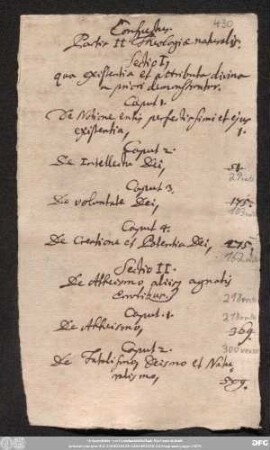 Conspectus
430
Partis II Theologiæ naturalis.
Sectio I,
qua existentia et attributa divina
a priori demonstrantur.
Caput 1.
De Notione entis perfectissimi et ejus
existentia, 1.
Caput 2.
De Intellectu Dei, 51.
Caput 3.
De voluntate Dei, 175.
Caput 4.
De Creatione et Potentia Dei, 275.
Sectio II.
De Atheismo aliisq agnatis
Erroribus.
Caput 1.
De Atheismo, 369.
Caput 2.
De Fatalismo, Deismo et Natu-
ralismo,
DFG